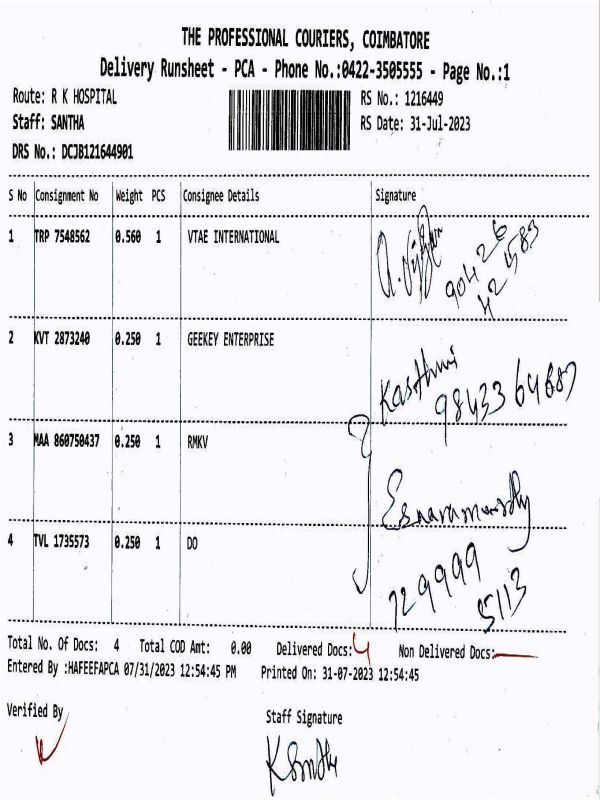 THE PROFESSIONAL COURIERS, COIMBATORE
Delivery Runsheet - PCA - Phone No.:0422-3505555 - Page No.:1
Route: R K HOSPITAL RS No.: 1216449
Staff: SANTHA RS Date: 31-Jul-2023
DRS No.: DCJB121644901
S No Consignment No Weight PCS Consignee Details Signature
1 TRP 7548562 0.560 1 VTAE INTERNATIONAL
90426
42583
2 KVT 2873240 0.250 1 GEEKEY ENTERPRISE
Kasthuri
3 MAA 860750437 0.250 1 RMKV
4 TVL 1735573 0.250 1 DO
729999
5113
Total No. Of Docs: 4 Total COD Amt: 0.00 Delivered Docs: 4 Non Delivered Docs:
Entered By :HAFEEFAPCA 07/31/2023 12:54:45 PM Printed On: 31-07-2023 12:54:45
Verified By
Staff Signature